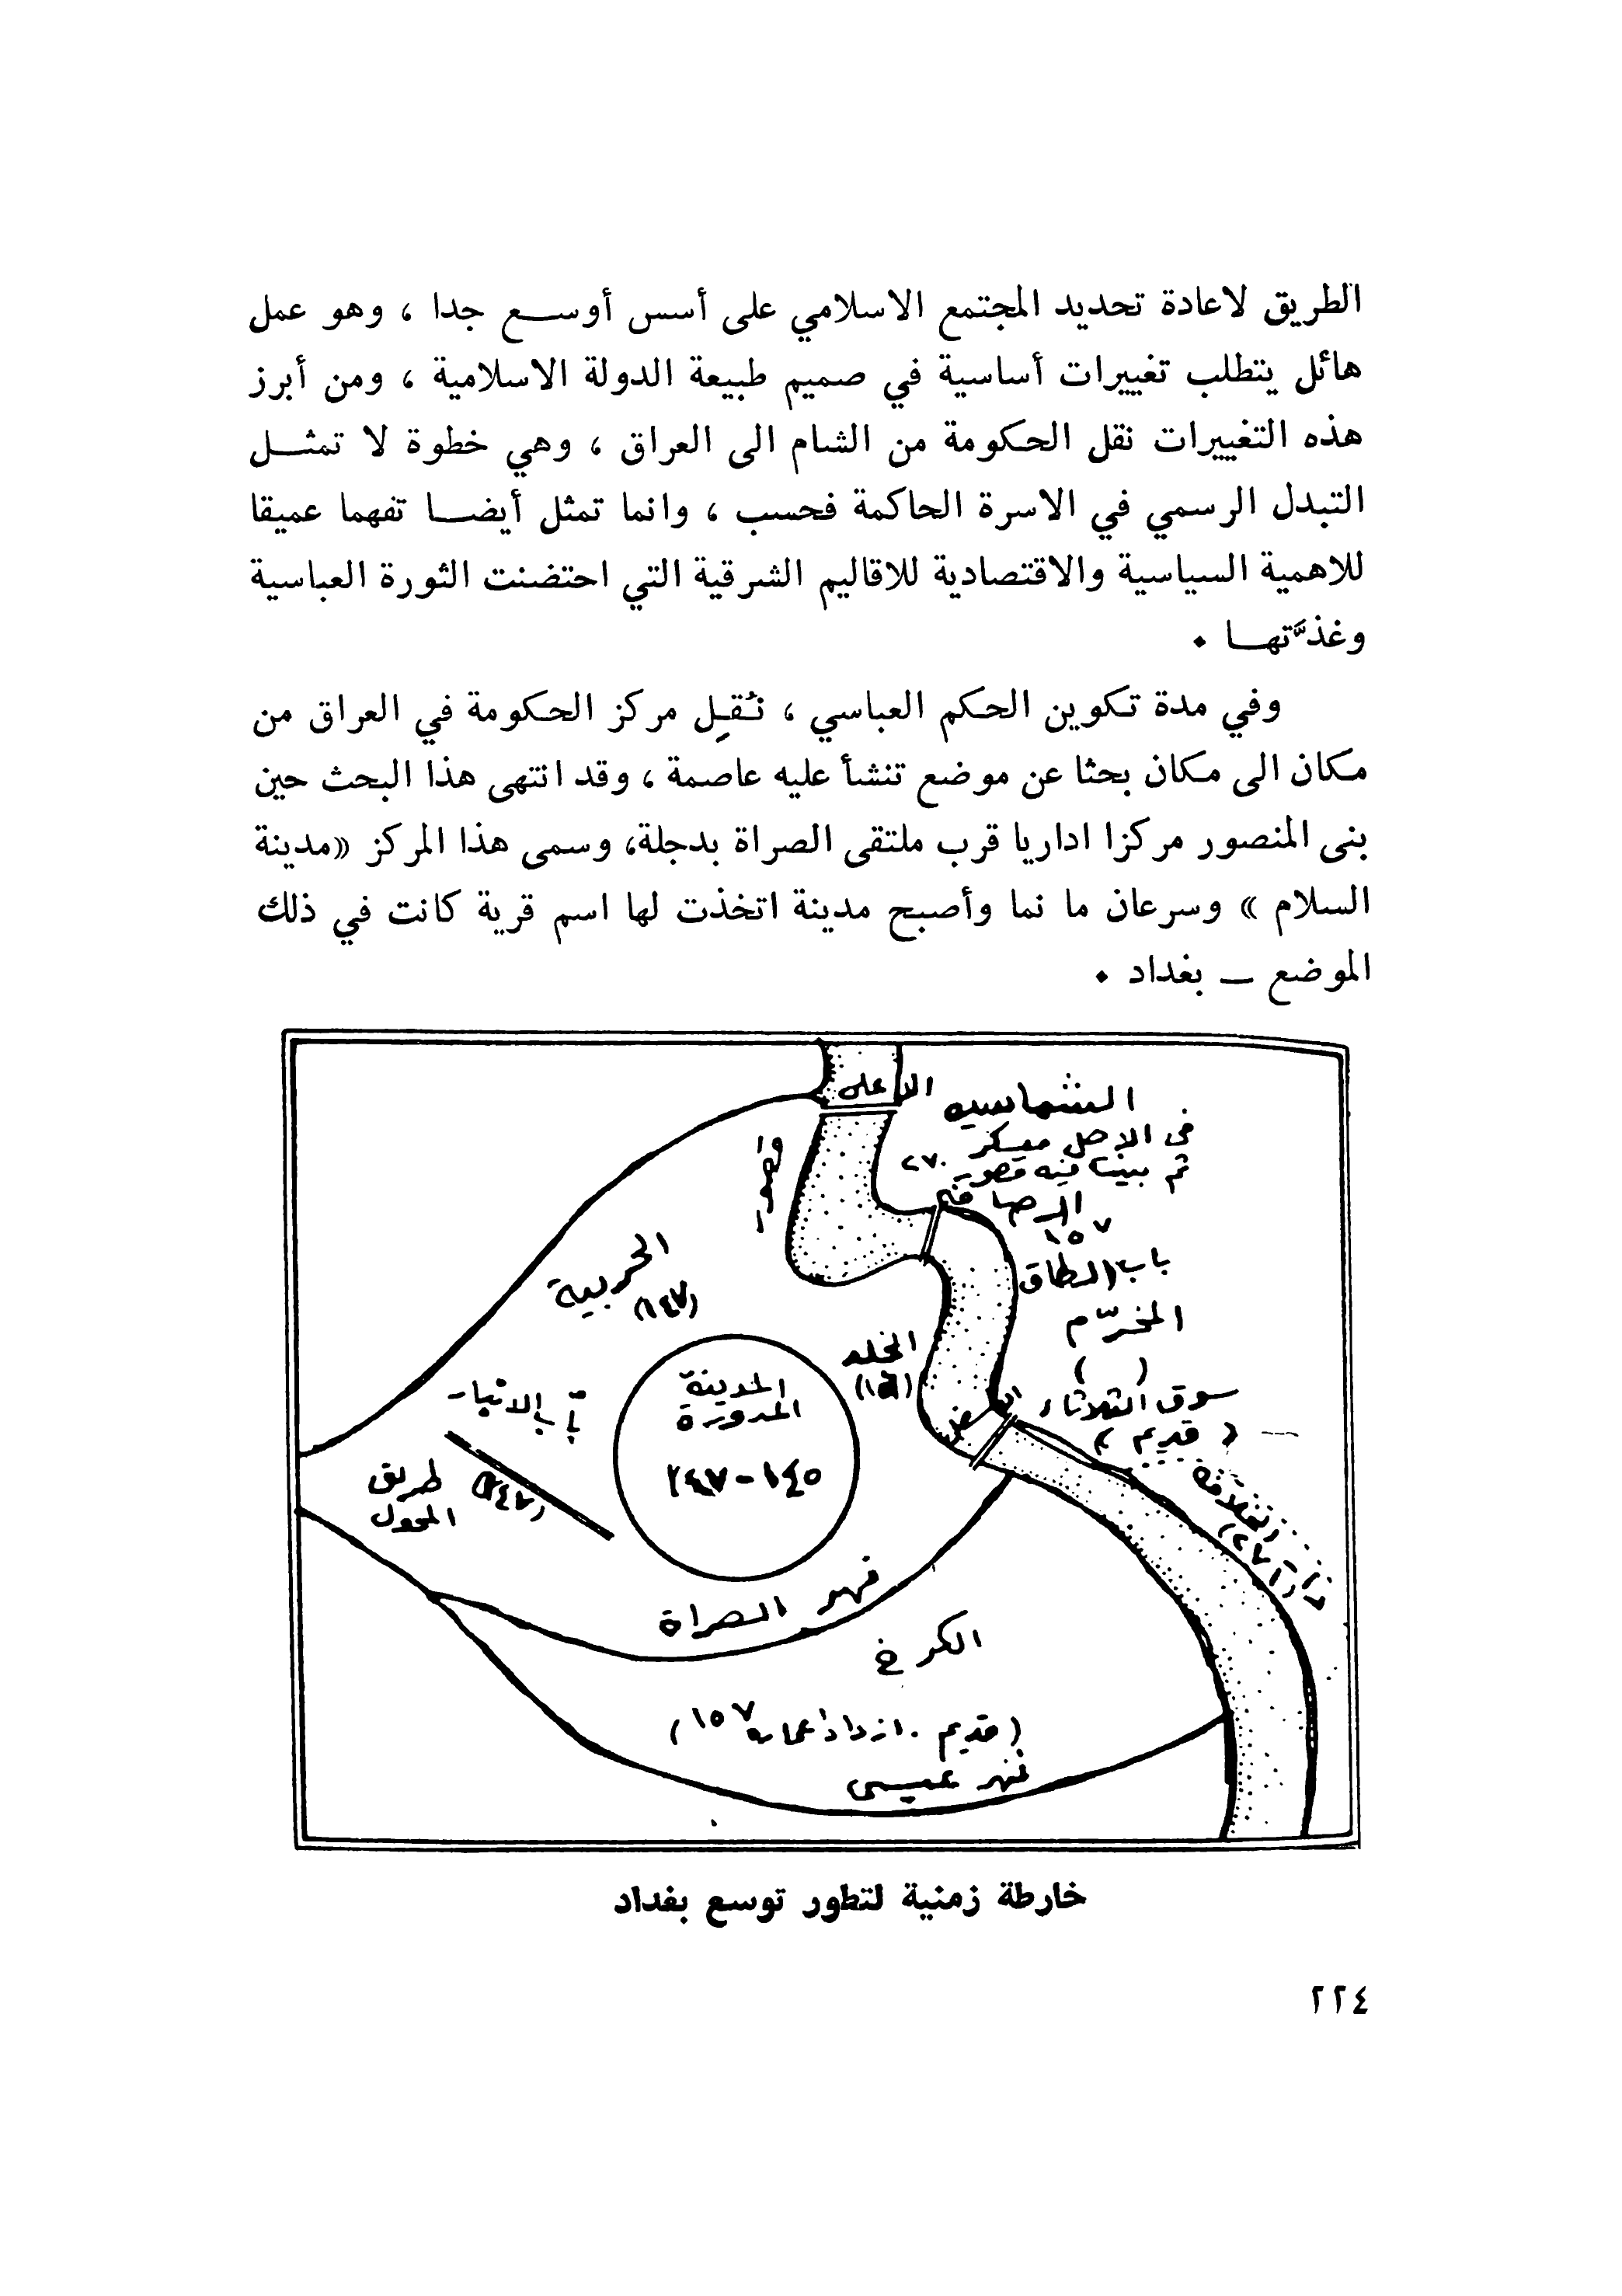 الطريق لاعادة تحديد المجتمع الاسلامي على أسس أوسـع جدا ، وهو عمل
هائل يتطلب تغييرات أساسية في صميم طبيعة الدولة الاسلامية ، ومن أبرز
هذه التغييرات نقل الحكومة من الشام الى العراق ، وهي خطوة لا تمثـل
التبدل الرسمي في الاسرة الحاكمة فحسب ، وانما تمثل أيضـا تفهما عميقا
للاهمية السياسية والاقتصادية للاقاليم الشرقية التي احتضنت الثورة العباسية
وغذَّتهـا .
وفي مدة تكوين الحكم العباسي ، نُقِل مركز الحكومة في العراق من
مكان الى مكان بحثا عن موضع تنشأ عليه عاصمة ، وقد انتهى هذا البحث حين
بنى المنصور مركزا اداريا قرب ملتقى الصراة بدجلة، وسمى هذا المركز «مدينة
السلام » وسرعان ما نما وأصبح مدينة اتخذت لها اسم قرية كانت في ذلك
الموضع ـ بغداد .
الاعلى
الشماسيه
في الاصل معسكر
ثم بنيت فيه قصور ٢٧٠
الرصافة
١٥٧
باب الطاق
المخرّم
( )
سوق الثلاثاء
( قديم )
الحربية
(١٤٧)
الخلد
المدينة
المدورة
١٤٥-١٤٧
باب الانبار
طريق
المحول
نهر الصراة
الكرخ
(قديم . ازداد اعماره ١٥٧)
نهر عيسى
خارطة زمنية لتطور توسع بغداد
٢٢٤